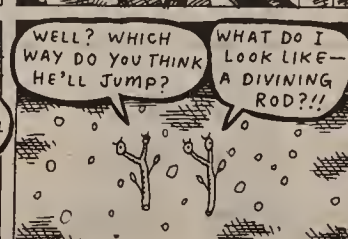 WELL? WHICH
WAY DO YOU THINK
HE'LL JUMP?
WHAT DO I
LOOK LIKE—
A DIVINING
ROD?!!